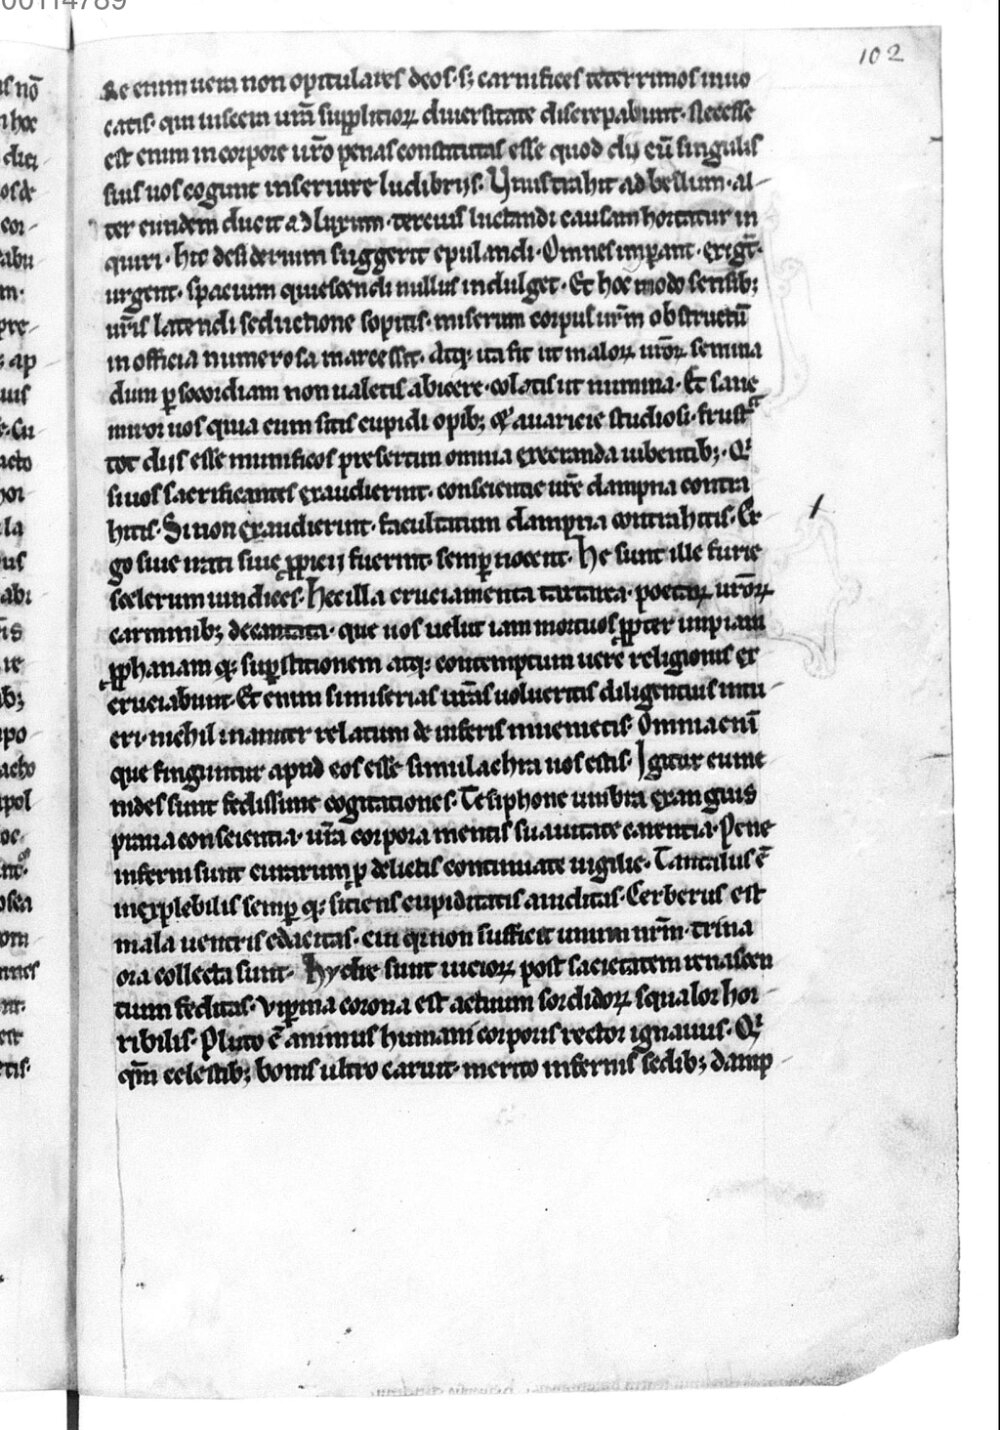 102
Re enim uera non opitulares deos· s; carnifices teterrimos inuo
catis· qui uiscera ur̄a suppliciorꝝ diuersitate discerpabunt· Necesse
est enim in corpore ur̄o penas constitutas esse quod dij cū singulis
suis uos cogunt inseruire ludibrijs· Vnus trahit ad bellum· al-
ter eundem ducit ad luxum· tercius luctandi causam hortatur in
quiri· hic desiderium suggerit epulandi· Omnes imꝑant· exigt̄·
urgent· spacium quiescendi nullus indulget· Et hoc modo sensib;
ur̄is latendi seductione sopitis· miserum corpus ur̄m obstructū
in officia numerosa marcessit· Atq; ita fit ut malorꝝ ur̄orꝝ semina
dum ꝑ socordiam non ualetis abicere· colatis ut numina· Et sane
miror uos quia cum sitis cupidi opib; & auaricie studiosi· frustᵃ
tot dijs esse munificos presertim omnia execranda iubentib;· Qͥ
si uos sacrificantes exaudierint· conscientie ur̄e dampna contra
hitis· Si non exaudierint· facultatum dampna contrahitis· Er
go siue irati siue ꝓpicij fuerint· semꝑ nocent· He sunt ille furie
scelerum uindices· Hec illa cruciamenta tartarea· poetarꝝ ur̄orꝝ
carminib; decantata· que uos uelut iam mortuos ꝓpter impiam
ꝓphanam q; suꝑstitionem atq; contemptum uere religionis ex
cruciabunt· Et enim si miserias ur̄as uolueritis diligentius intu
eri· nichil inaniter relatum de inferis inuenietis· Omnia enī
que finguntur apud eos esse simulachra uos estis· Igitur eume
nides sunt fedissime cogitationes· Tesiphone umbra exanguis
praua conscientia· ur̄a corpora mentis suauitate carentia· Pene
inferni sunt curarum ꝓ delictis continuate uigilie· Tantalus ē
inexplebilis semꝑ q; sitiens cupiditatis auiditas· Cerberus est
mala uentris edacitas· cui qͥ non sufficit unum ur̄m· trina
ora collecta sunt· Hydre sunt uiciorꝝ post sacietatem renascen
tium feditas· Viꝑina corona est actuum sordidorꝝ squalor hor
ribilis· Pluto ē animus humani corporis rector ignauus· Qͥ
qm̄ celestib; bonis ultro caruit· merito infernis sedib; damp